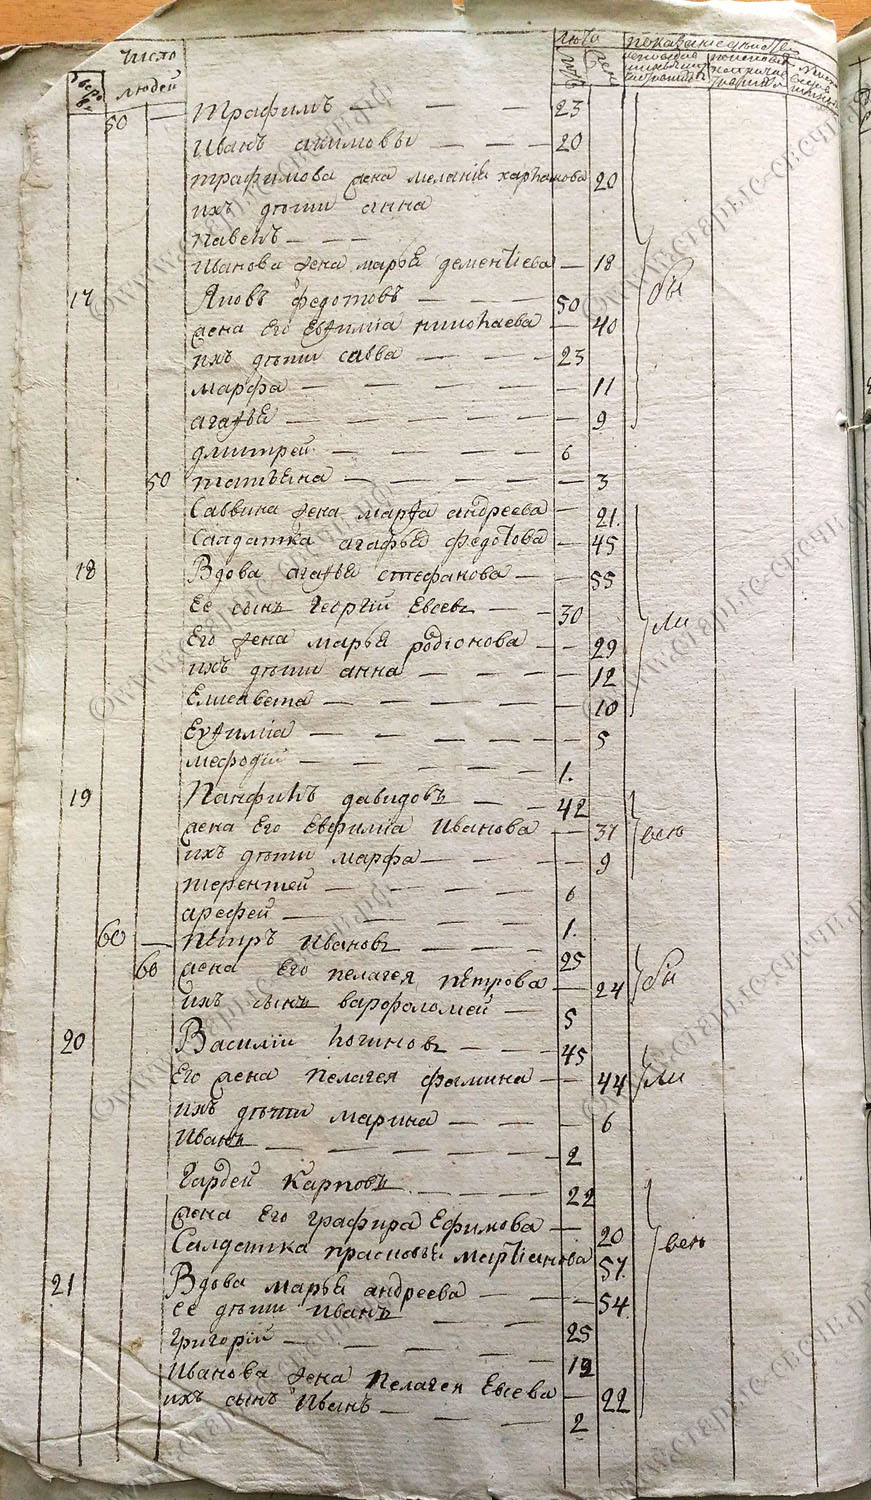 число людей
лѣта
50 — Трафимъ — — — 23
Иванъ акимовъ — — — 20
трафимова жена меланiя харламова 20
ихъ дѣти анна
павелъ — — —
Иванова жена марья дементiева — 18
17 Яковъ федотовъ — — — 50
жена Его Евѳимiа николаева — 40
ихъ дѣти савва — — — 23
марфа — — — — — 11
агаѳья — — — — — 9
дмитрей — — — — 6
50 татьяна — — — — — 3
Саввина жена марѳа андреева — 21.
Салдатка агафья федотова — 45
18 Вдова агаѳья стефанова — — 55
Ее сынъ Георгiй Евсевъ — — 30
Его жена марья родiонова — — 29
ихъ дѣти анна — — — — 12
Елисавета — — — — — 10
Еѵѳимiа — — — — — 5
мефодiй — — — — — 1.
19 Панфилъ давидовъ — — 42
жена Его Евфимiа Иванова — 37
ихъ дѣти марфа — — — — 9
терентей — — — — — 6
арефей — — — — — 1.
60 — Петръ Ивановъ — — — — 25
60 жена Его пелагея петрова — 24
ихъ сынъ варфоломей — 5
20 Василiй логиновъ — — — 45
Его жена пелагея фомина — — 44
ихъ дѣти марина — — — 6
Иванъ — — — — — — 2
Гардей Карповъ — — — — 22
жена Его графира Ефимова — 20
Салдатка прасковья мартiанова 57.
21 Вдова марья андреева — — — 54
ее дѣти иванъ — — — 25
григорiй — — — — — 12
Иванова жена пелагея Евсева — 22
ихъ сынъ Иванъ — — — 2
бы
ли
всю
бы
ли
всю
©www.старые-свечи.рф